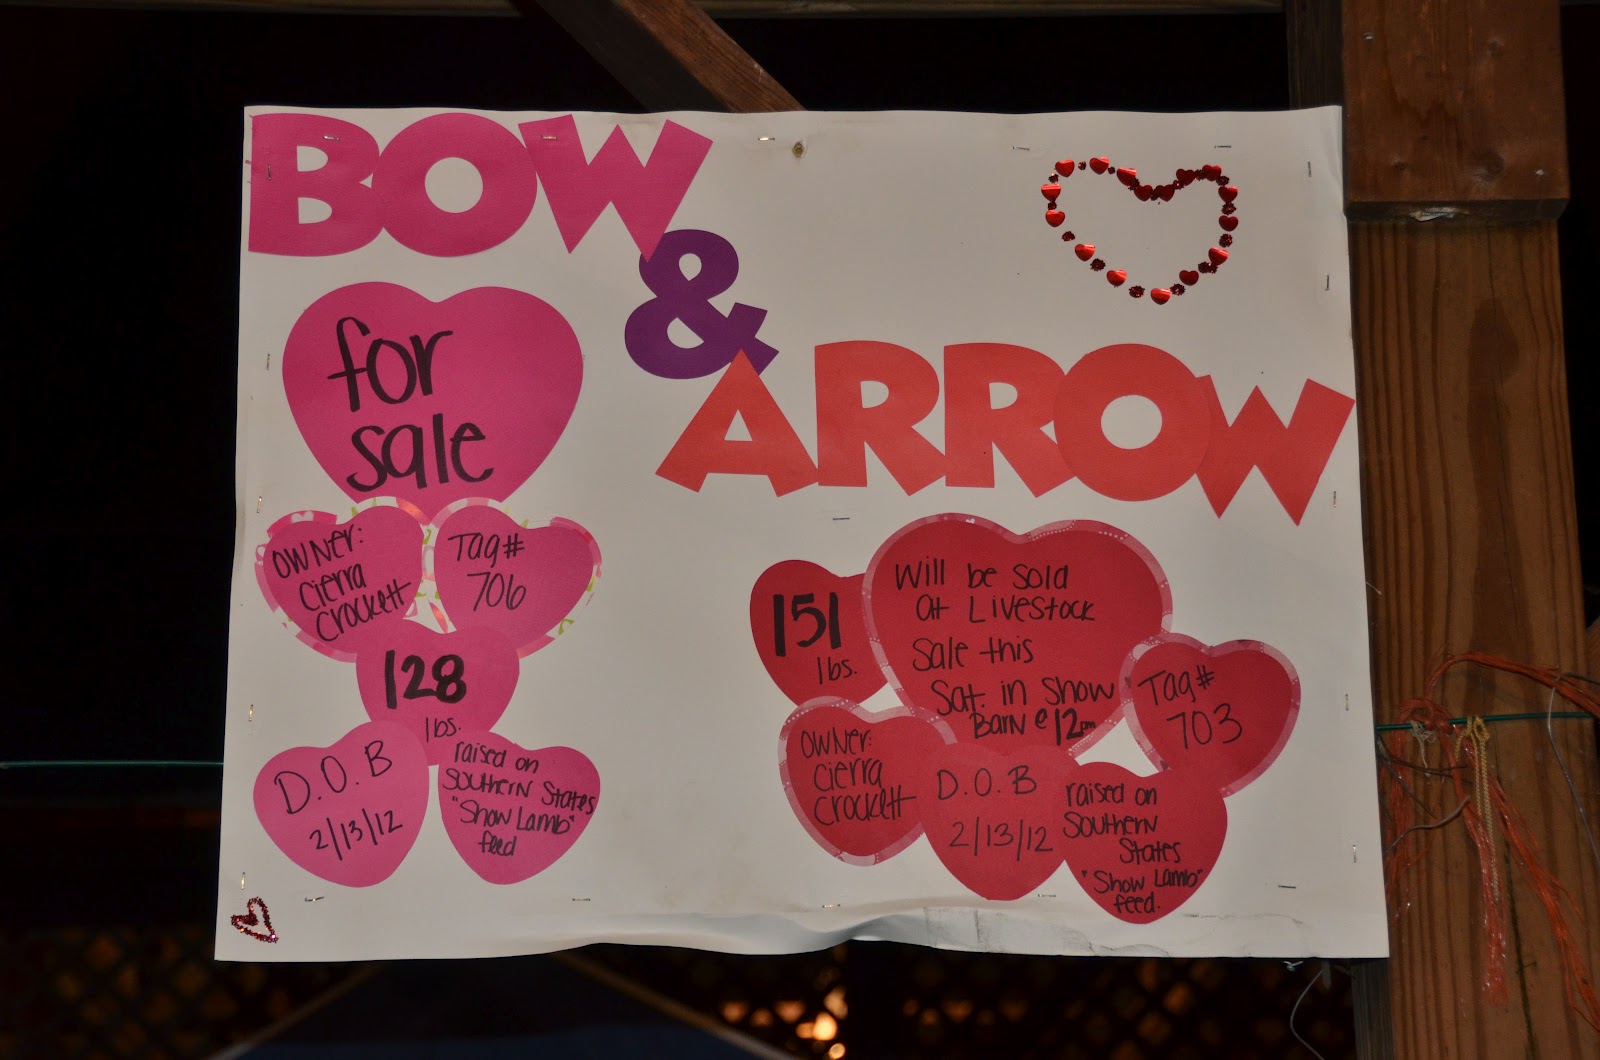 BOW
&
ARROW
for
sale
owner:
cierra
crockett
Tag#
706
128
lbs.
D.O.B
2/13/12
raised on
Southern States
"Show Lamb"
feed
151
lbs.
Will be sold
at Livestock
Sale this
Sat. in Show
Barn @ 12pm
Tag#
703
owner:
cierra
crockett
D.O.B
2/13/12
raised on
Southern
States
"Show Lamb"
feed.